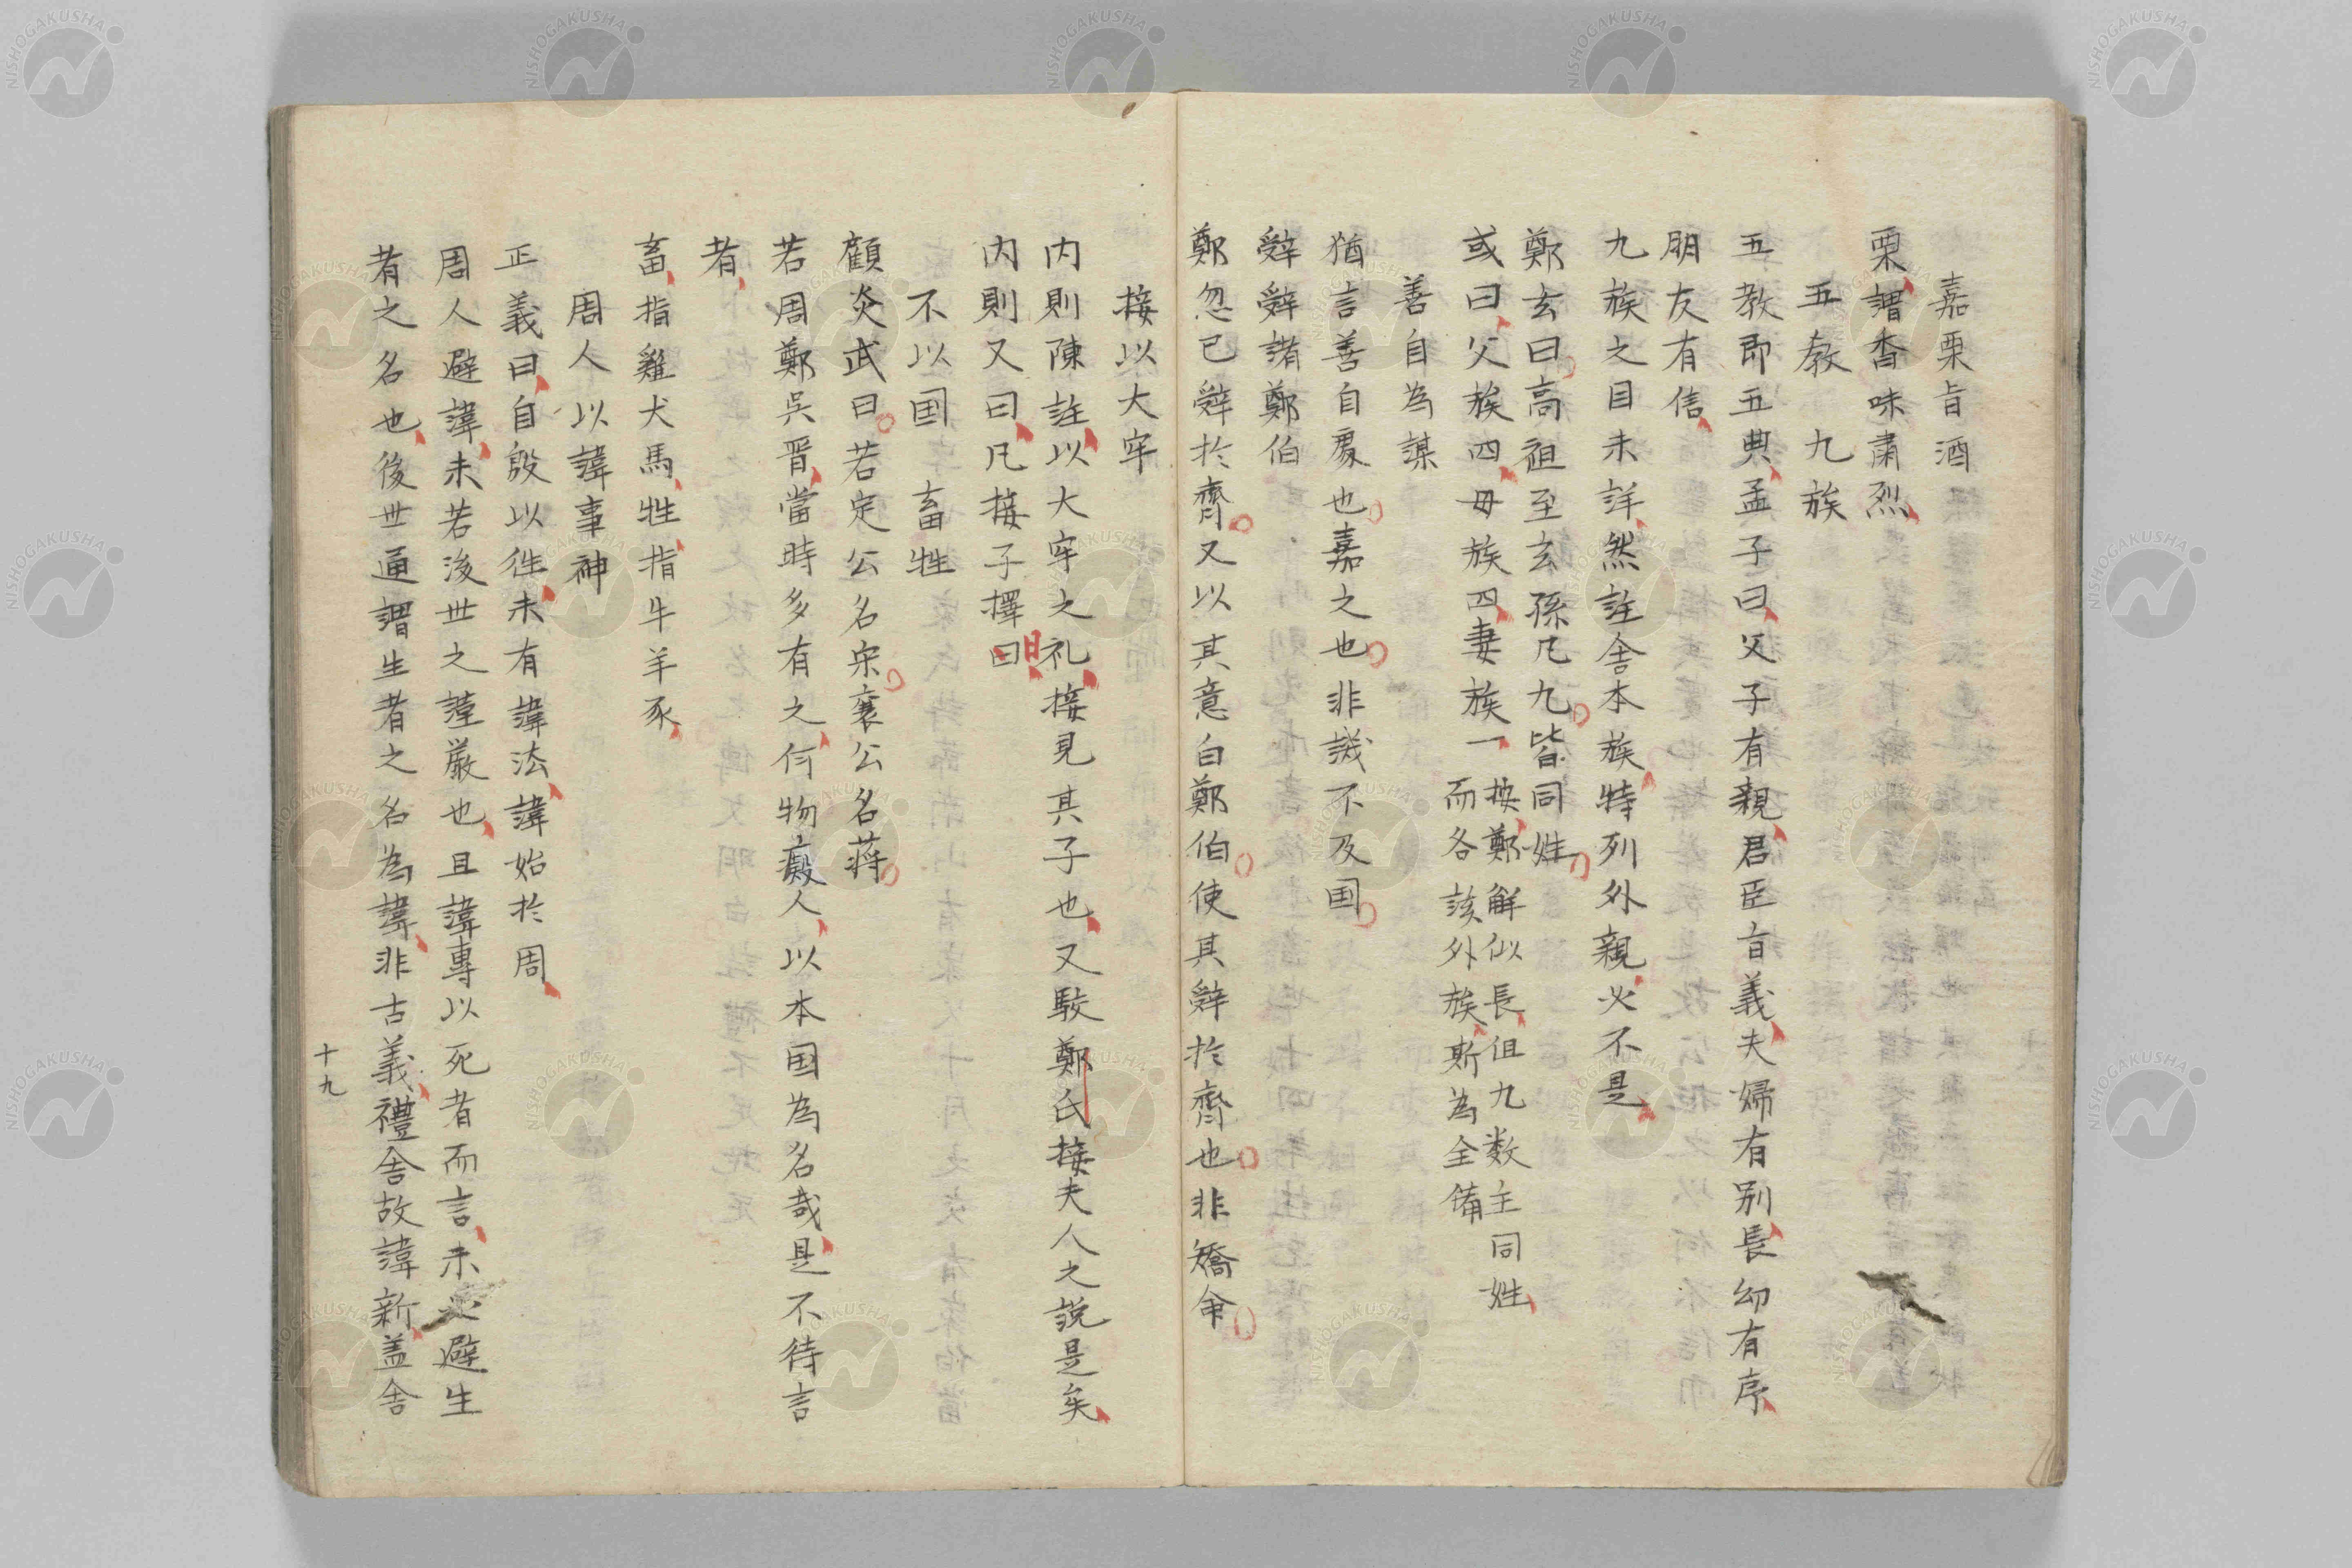 嘉栗旨酒
栗謂香味肅烈
五教　九族
五教即五典孟子曰父子有親君臣有義夫婦有別長幼有序
朋友有信
九族之目未詳然註舍本族特列外親必不是
鄭玄曰高祖至玄孫凡九皆同姓
或曰父族四母族四妻族一
按鄭解似長但九数主同姓
而各該外族斯為全備
善自為謀
猶言善自處也嘉之也非譏不及国
辭辭諸鄭伯
鄭忽已辭於齊又以其意白鄭伯使其辭於齊也非矯命
接以大牢
内則陳註以大牢之礼接見其子也又駁鄭氏接夫人之説是矣
内則又曰凡接子擇日
日
不以国　畜牲
顧炎武曰若定公名宋襄公名蒋
若周鄭呉晋當時多有之何物癡人以本国為名哉是不待言
者
畜指雞犬馬牲指牛羊豕
周人以諱事神
正義曰自殷以徃未有諱法諱始於周
周人避諱未若後世之謹厳也且諱專以死者而言未必避生
者之名也後世通謂生者之名為諱非古義禮舍故諱新盖舍
十九
NISHOGAKUSHA